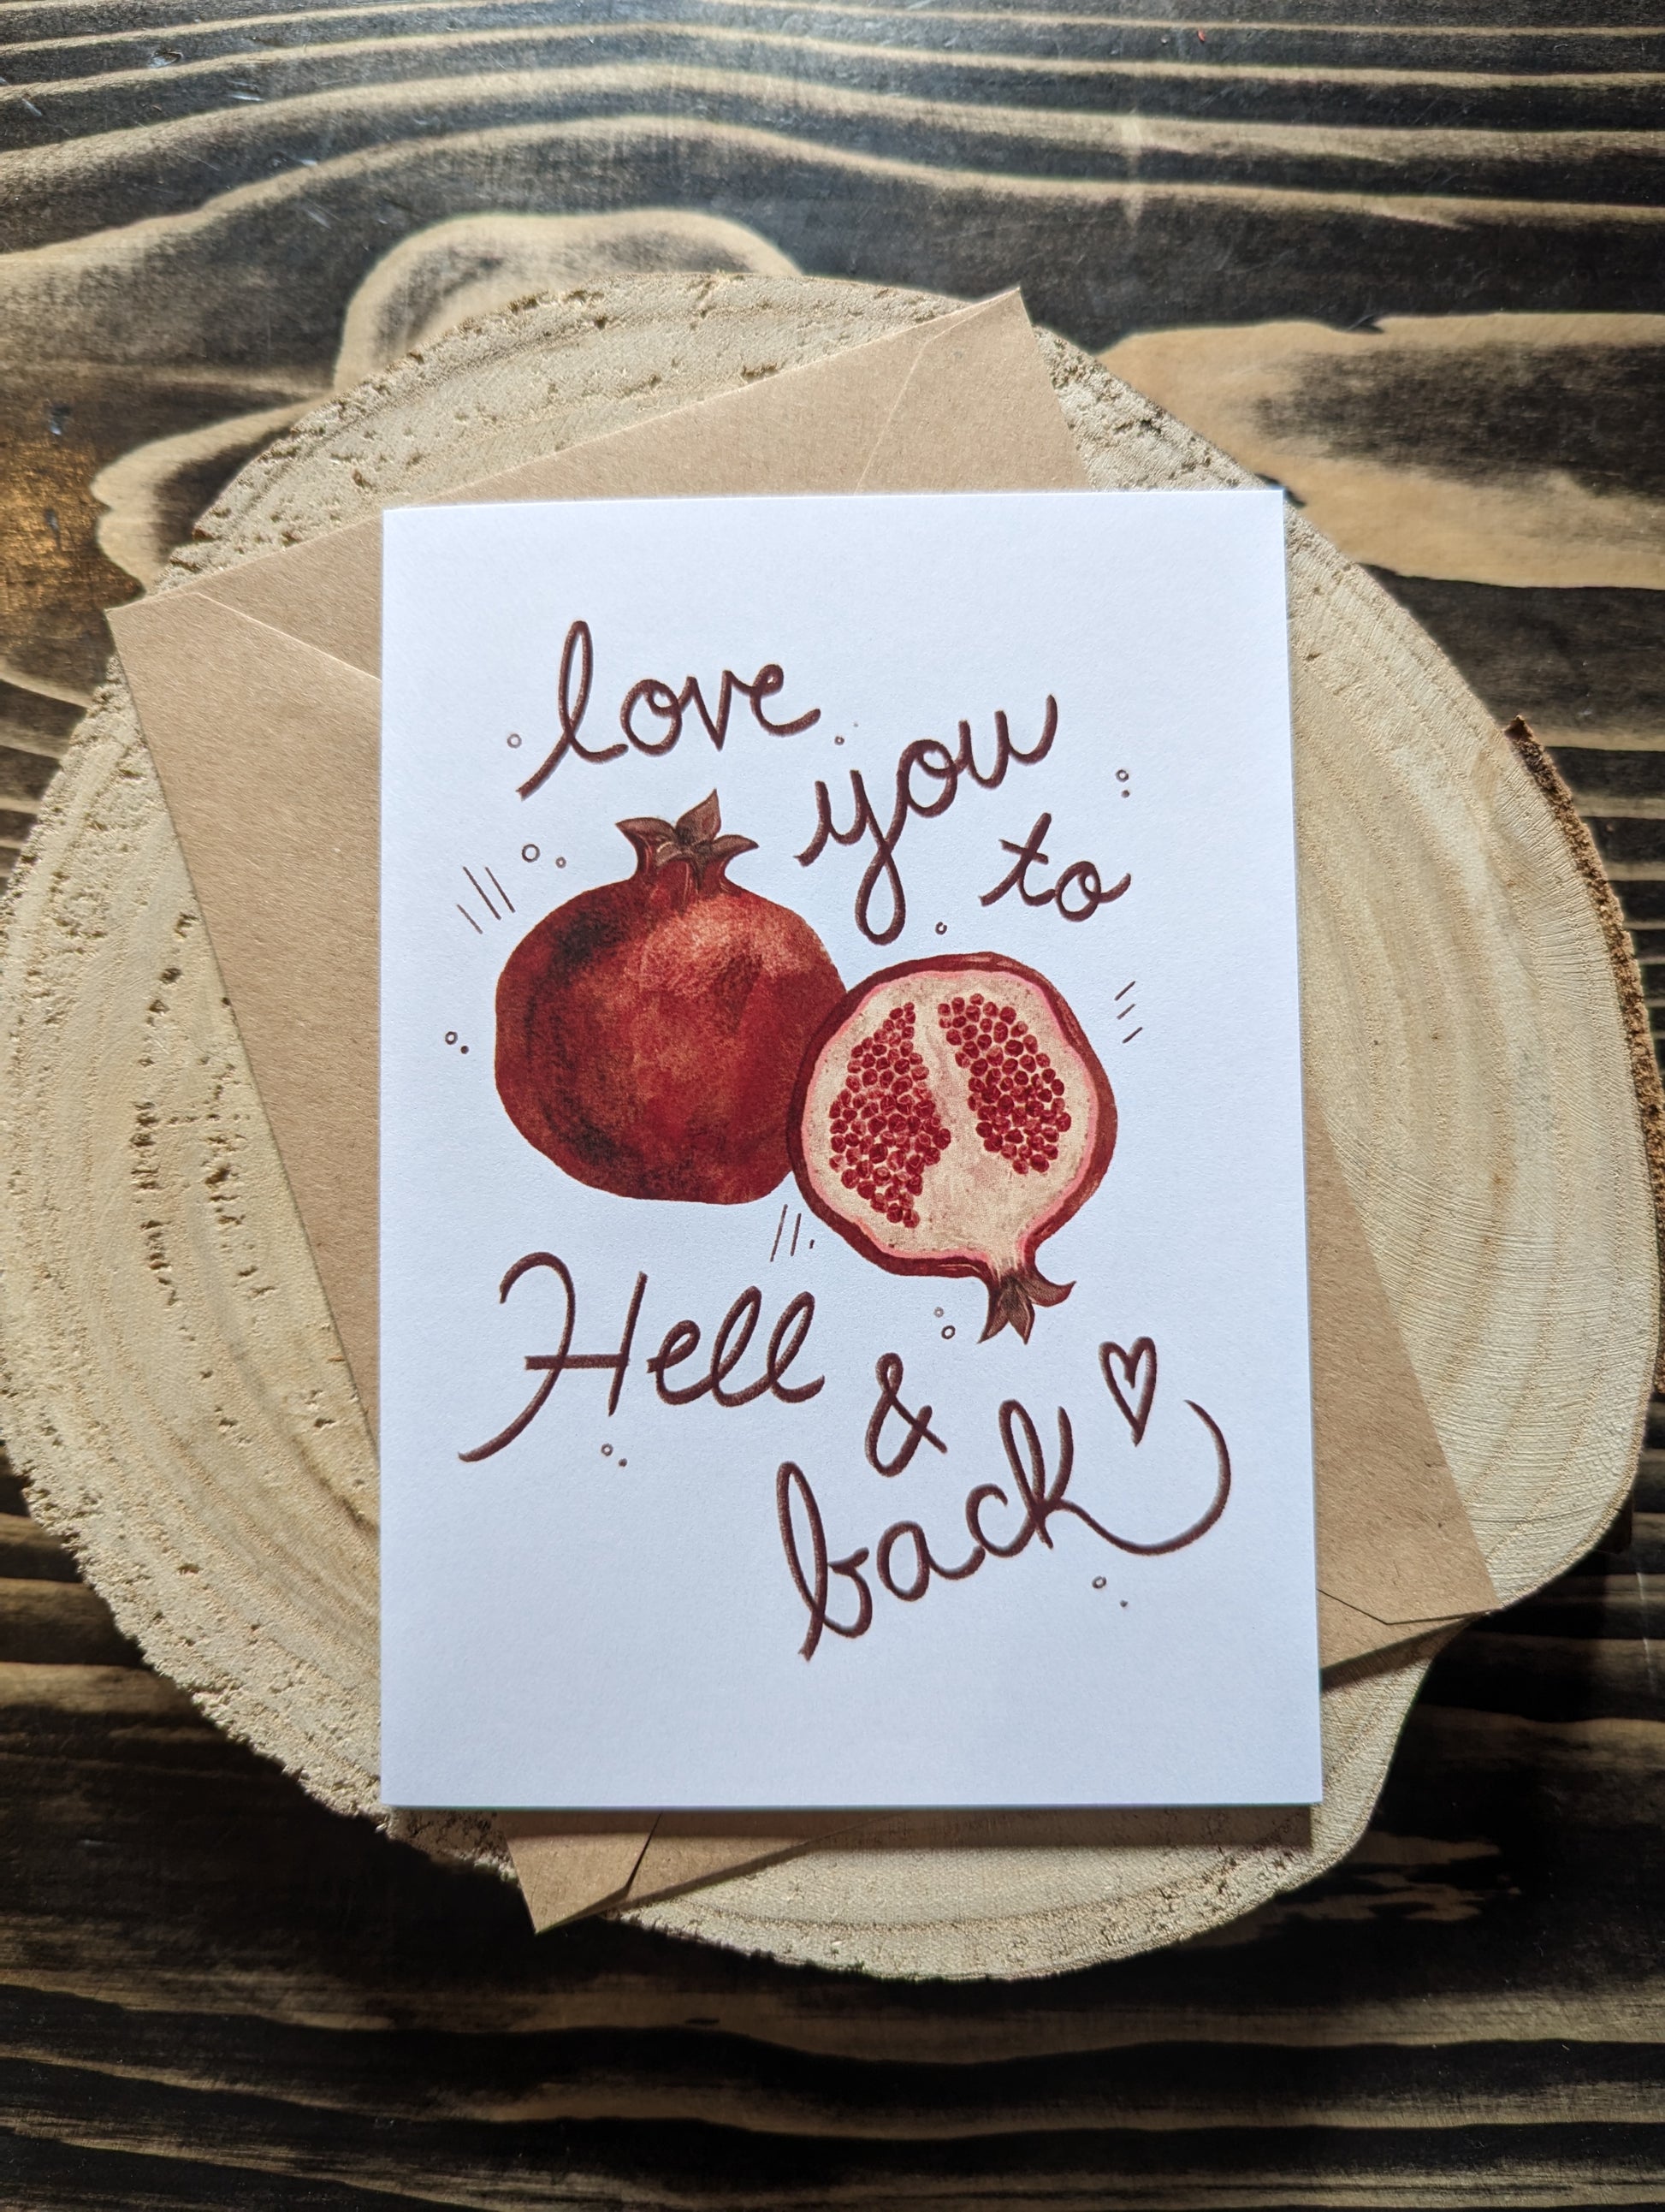 love
you
to
Hell
&
back